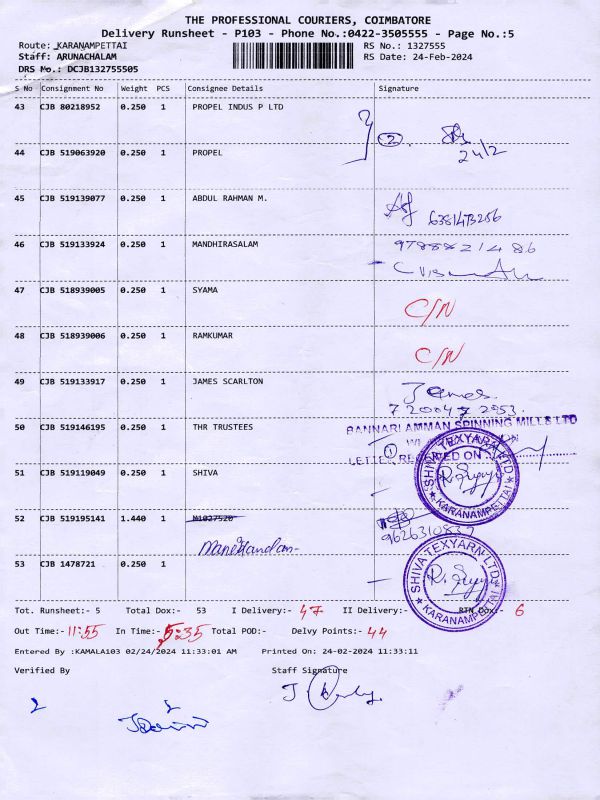 THE PROFESSIONAL COURIERS, COIMBATORE
Delivery Runsheet - P103 - Phone No.:0422-3505555 - Page No.:5
Route: KARANAMPETTAI RS No.: 1327555
Staff: ARUNACHALAM RS Date: 24-Feb-2024
DRS No.: DCJB132755505
S No Consignment No Weight PCS Consignee Details Signature
43 CJB 80218952 0.250 1 PROPEL INDUS P LTD
2 24/2
44 CJB 519063920 0.250 1 PROPEL
45 CJB 519139077 0.250 1 ABDUL RAHMAN M.
46 CJB 519133924 0.250 1 MANDHIRASALAM
47 CJB 518939005 0.250 1 SYAMA C/N
48 CJB 518939006 0.250 1 RAMKUMAR C/N
49 CJB 519133917 0.250 1 JAMES SCARLTON James
7200472953
50 CJB 519146195 0.250 1 THR TRUSTEES BANNARI AMMAN SPINNING MILLS LTD
1
LETTER RECEIVED ON
SHIVA TEXYARN LTD
KARANAMPETTAI
51 CJB 519119049 0.250 1 SHIVA
52 CJB 519195141 1.440 1 N1027520
53 CJB 1478721 0.250 1
SHIVA TEXYARN LTD
KARANAMPETTAI
Tot. Runsheet:- 5 Total Dox:- 53 I Delivery:- 47 II Delivery:- RTN Dox:- 6
Out Time:- 11:55 In Time:- 5:35 Total POD:- Delvy Points:- 44
Entered By :KAMALA103 02/24/2024 11:33:01 AM Printed On: 24-02-2024 11:33:11
Verified By Staff Signature